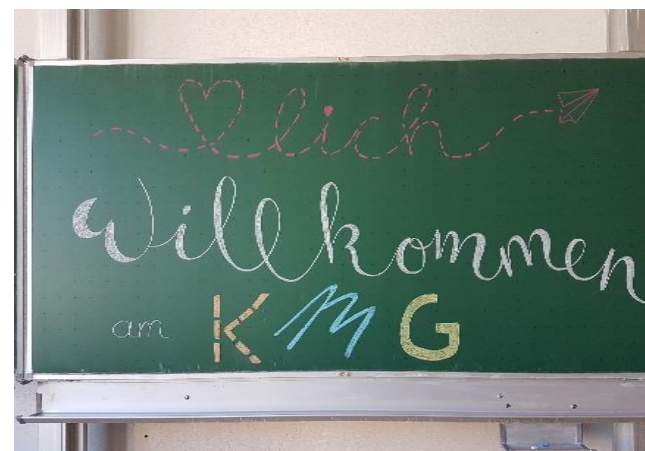 ♥lich
Willkommen
am KMG